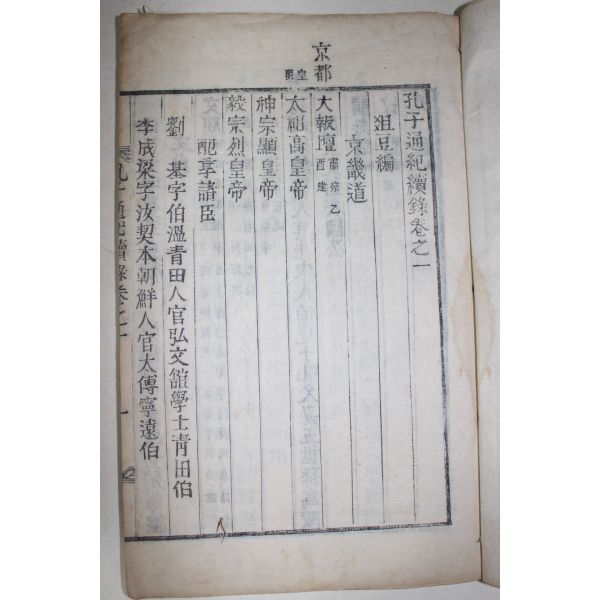 京都
皇明
孔子通紀續錄卷之一
俎豆編
京畿道
大報壇 肅宗乙酉建
太祖高皇帝
神宗顯皇帝
毅宗烈皇帝
配享諸臣
劉 基字伯溫青田人官弘文館學士青田伯
李成梁字汝契本朝鮮人官太傅寧遠伯
孔子通紀續錄卷之一 一